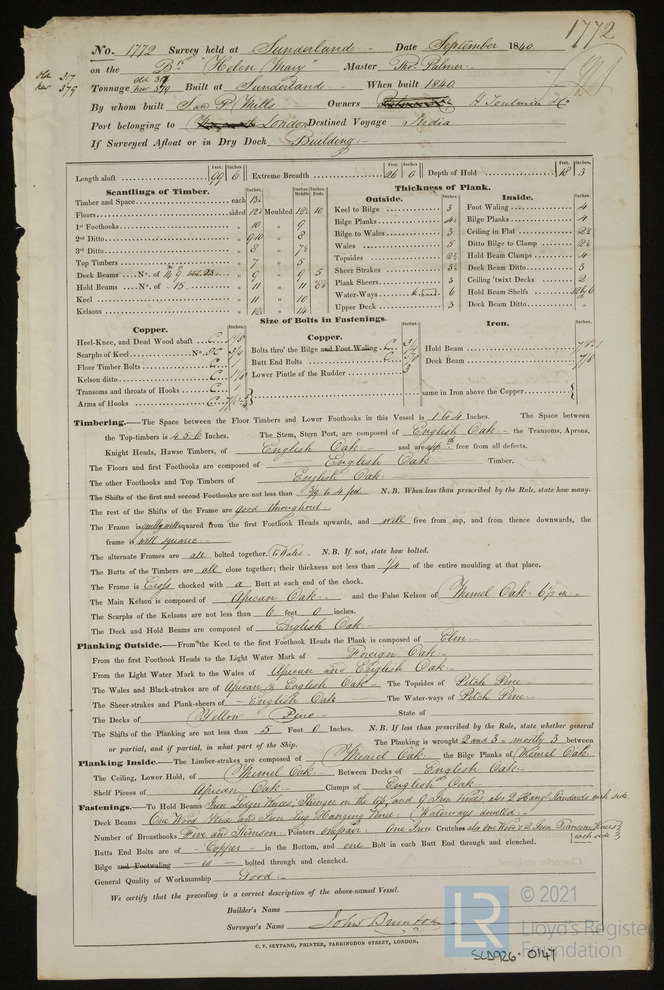 1772
No. 1772 Survey held at Sunderland Date September 1840
on the Bk "Helen Mary" Master Thos Palmer
old 317
new 379
Tonnage old 317 new 379 Built at Sunderland When built 1840
By whom built Saml P Mills Owners
Port belonging to London Destined Voyage India
If Surveyed Afloat or in Dry Dock Building
Feet. Inches. Feet. Inches. Feet. Inches.
Length aloft 99 6 Extreme Breadth 26 0 Depth of Hold 18 3
Scantlings of Timber. Thickness of Plank.
Outside. Inside.
Timber and Space each
Floors sided Moulded 10
1st Foothooks 10 " 9
2nd Ditto " 8
3rd Ditto 8 "
Top Timbers 7 " 5
Deck Beams No. of 9 " 9 5
Hold Beams No. of 15 11 " 11
Keel 11 " 10
Kelsons " 14
Keel to Bilge 3
Bilge Planks 4½
Bilge to Wales 3
Wales 5
Topsides 2½
Sheer Strakes 3½
Plank Sheers 3
Water-Ways 6
Upper Deck 3
Foot Waling 4
Bilge Planks 4
Ceiling in Flat 2½
Ditto Bilge to Clamp 2½
Hold Beam Clamps 4
Deck Beam Ditto 3
Ceiling 'twixt Decks 2
Hold Beam Shelfs
Deck Beam Ditto "
Size of Bolts in Fastenings.
Copper. Copper. Iron.
Heel-Knee, and Dead Wood abaft C.
Scarphs of Keel No.
Floor Timber Bolts C.
Kelson ditto C.
Transoms and throats of Hooks C.
Arms of Hooks C.
Bolts thro' the Bilge and Foot Waling C.
Butt End Bolts C.
Lower Pintle of the Rudder 3
Hold Beam
Deck Beam 7/8
same in Iron above the Copper
Timbering.—The Space between the Floor Timbers and Lower Foothooks in this Vessel is 1 to 4 Inches. The Space between
the Top-timbers is 4 5 6 Inches. The Stem, Stern Post, are composed of English Oak the Transoms, Aprons,
Knight Heads, Hawse Timbers, of English Oak and are free from all defects.
The Floors and first Foothooks are composed of English Oak Timber.
The other Foothooks and Top Timbers of English Oak
The Shifts of the first and second Foothooks are not less than N.B. When less than prescribed by the Rule, state how many.
The rest of the Shifts of the Frame are good throughout
The Frame is well squared from the first Foothook Heads upwards, and well free from sap, and from thence downwards, the
frame is well square
The alternate Frames are all bolted together. to Wales N.B. If not, state how bolted.
The Butts of the Timbers are all close together; their thickness not less than ¼ of the entire moulding at that place.
The Frame is Cross chocked with a Butt at each end of the chock.
The Main Kelson is composed of African Oak and the False Kelson of Memel Oak
The Scarphs of the Kelsons are not less than 6 feet 0 inches.
The Deck and Hold Beams are composed of English Oak
Planking Outside.—From the Keel to the first Foothook Heads the Plank is composed of Elm
From the first Foothook Heads to the Light Water Mark of Foreign Oak
From the Light Water Mark to the Wales of African and English Oak
The Wales and Black-strakes are of African & English Oak The Topsides of Pitch Pine
The Sheer-strakes and Plank-sheers of English Oak The Water-ways of Pitch Pine
The Decks of Yellow Pine State of
The Shifts of the Planking are not less than 5 Feet 0 Inches. N.B. If less than prescribed by the Rule, state whether general
or partial, and if partial, in what part of the Ship. The Planking is wrought 2 and 3 mostly 3 between
Planking Inside.—The Limber-strakes are composed of Memel Oak the Bilge Planks of Memel Oak
The Ceiling, Lower Hold, of Memel Oak Between Decks of English Oak
Shelf Pieces of African Oak Clamps of English Oak
Fastenings.—To Hold Beams Iron Lodge Knees, on the and Iron Knees, also 2 Hang Standards each side
Deck Beams One Wood and Iron Lug Hanging Knee Waterways
Number of Breasthooks Five and Stemson Pointers One pair One Iron Crutches also one Wood & 2 Iron Transom Knees
each side
Butts End Bolts are of Copper in the Bottom, and one Bolt in each Butt End through and clenched.
Bilge and Footwaling id bolted through and clenched.
General Quality of Workmanship Good
We certify that the preceding is a correct description of the above-named Vessel.
Builder's Name
Surveyor's Name John Brunton
C. F. SEYFANG, PRINTER, FARRINGDON STREET, LONDON.
SLD926-0147
LR © 2021
Lloyd's Register
Foundation